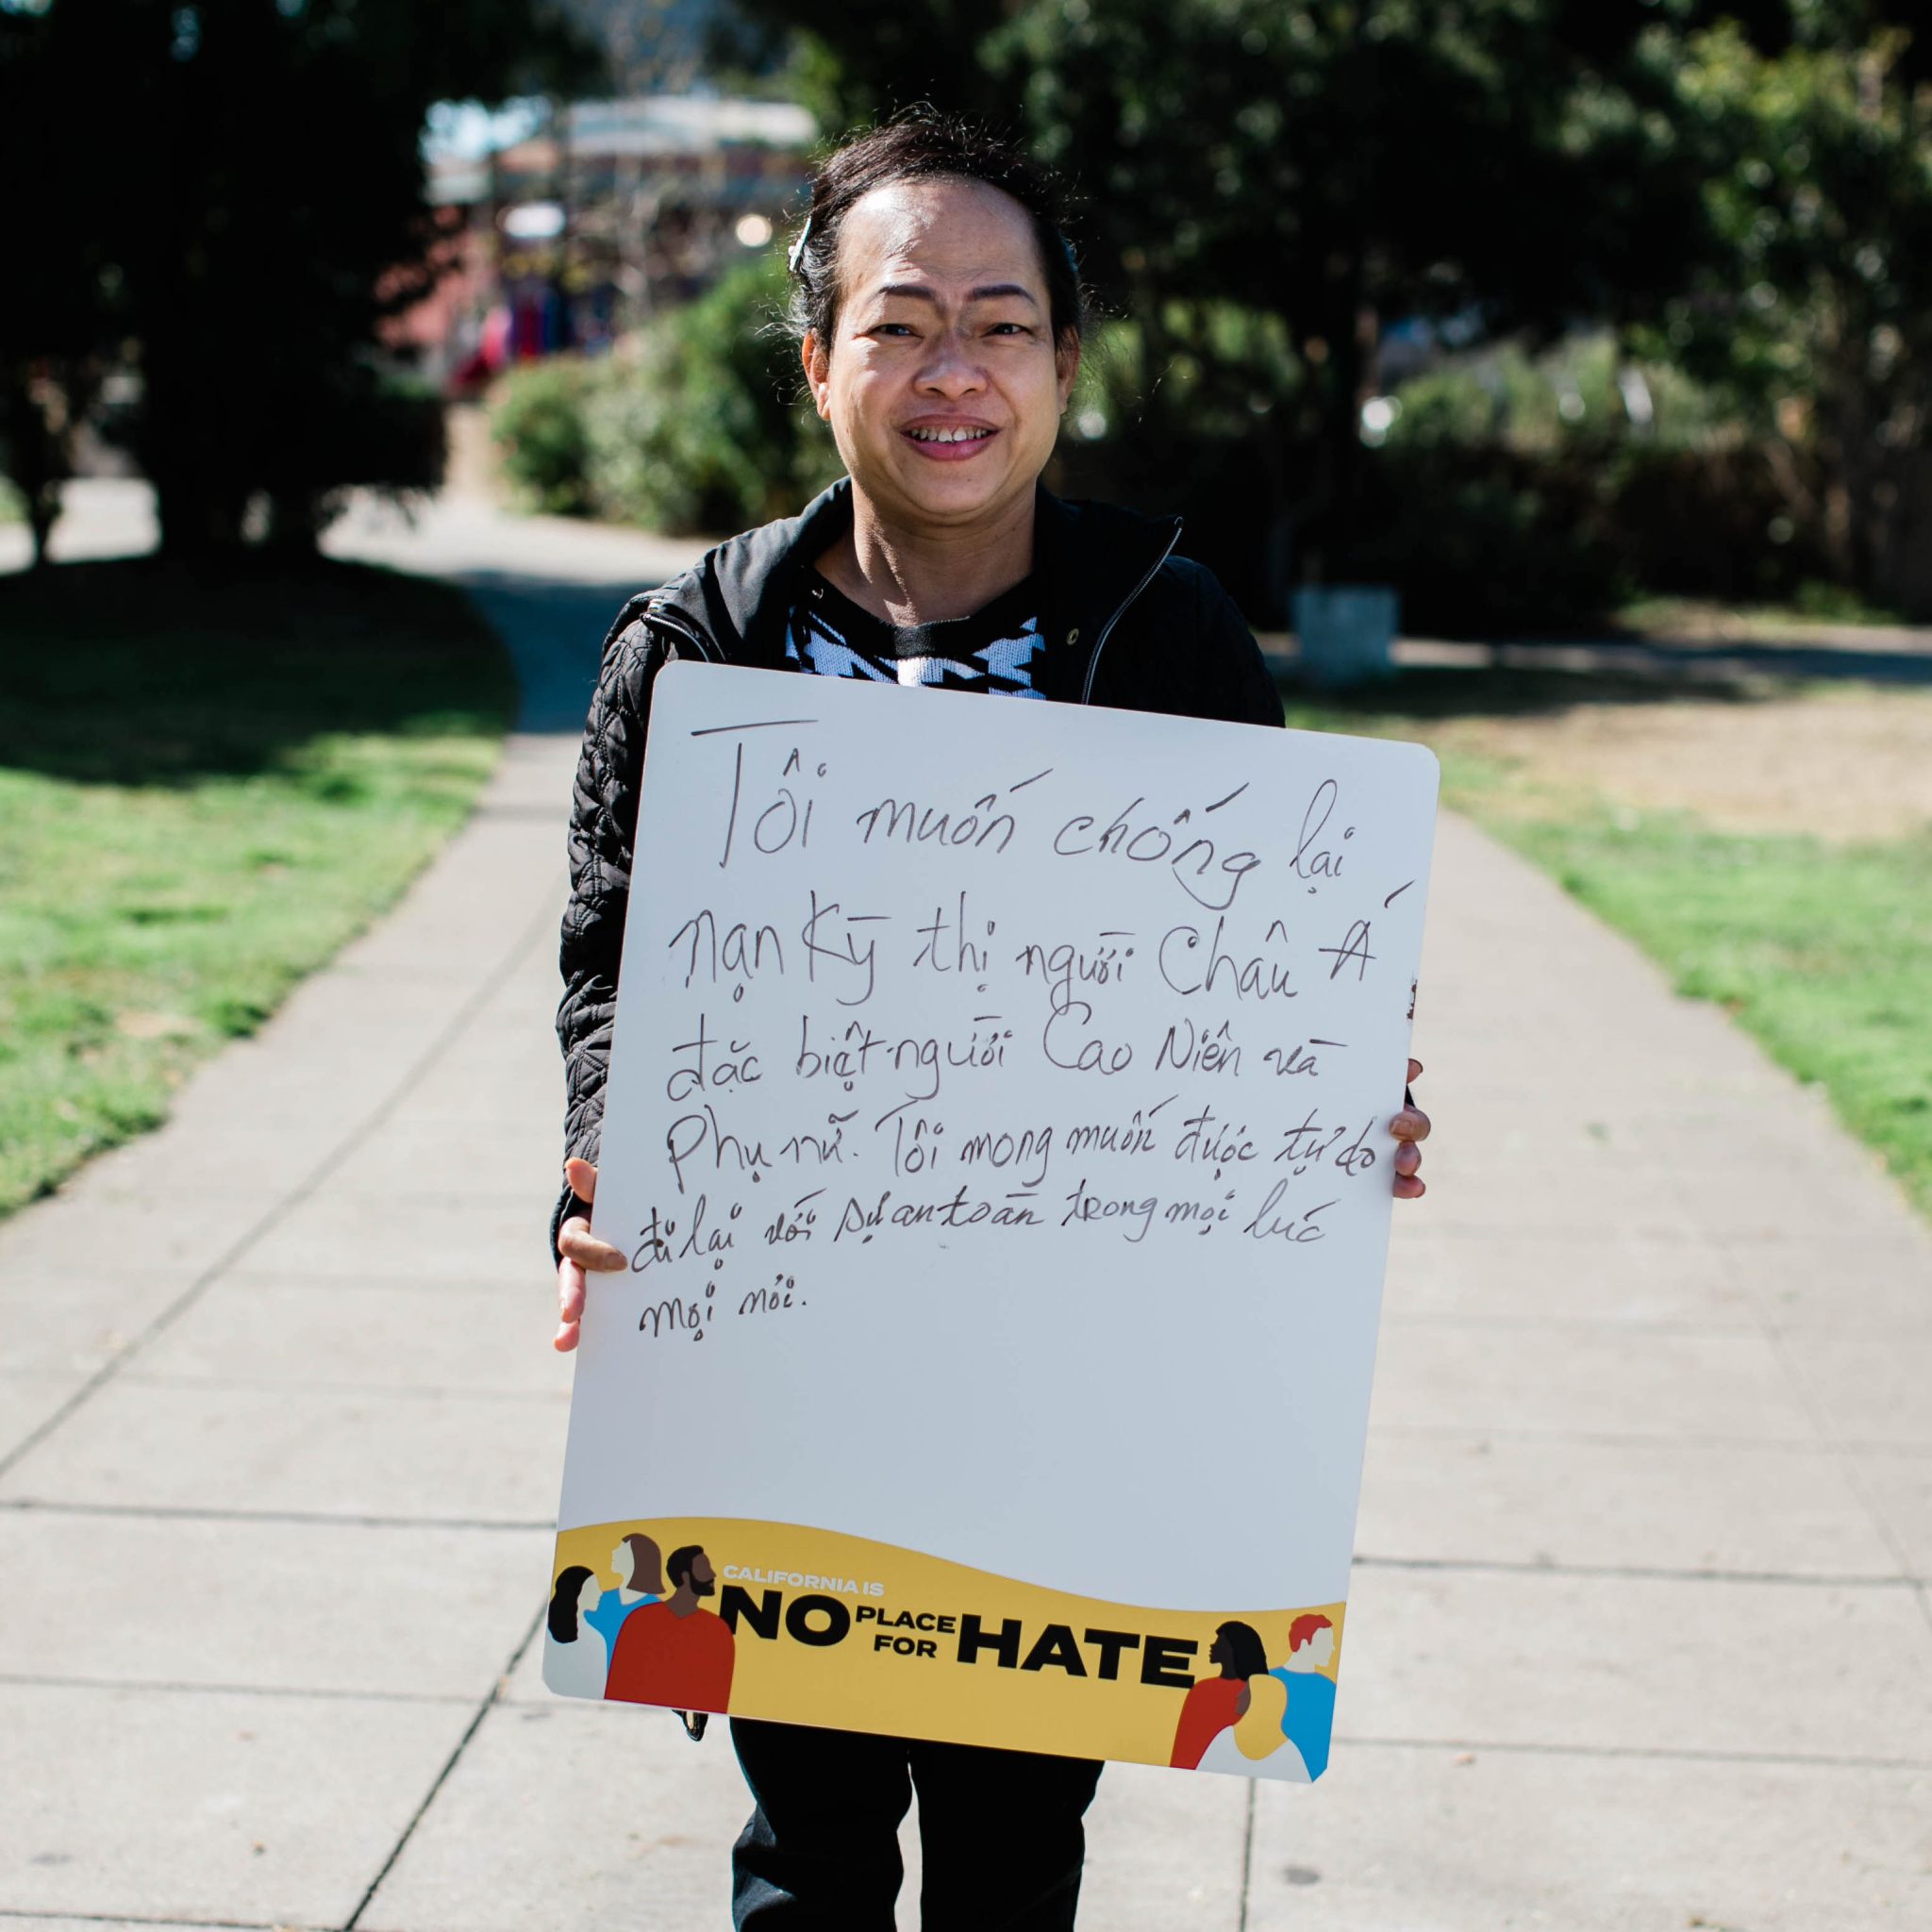 Tôi muốn chống lại
nạn Kỳ thị người Châu Á
đặc biệt người Cao Niên và
Phụ nữ. Tôi mong muốn được tự do
đi lại với sự an toàn trong mọi lúc
mọi nơi.
CALIFORNIA IS
NO PLACE FOR HATE